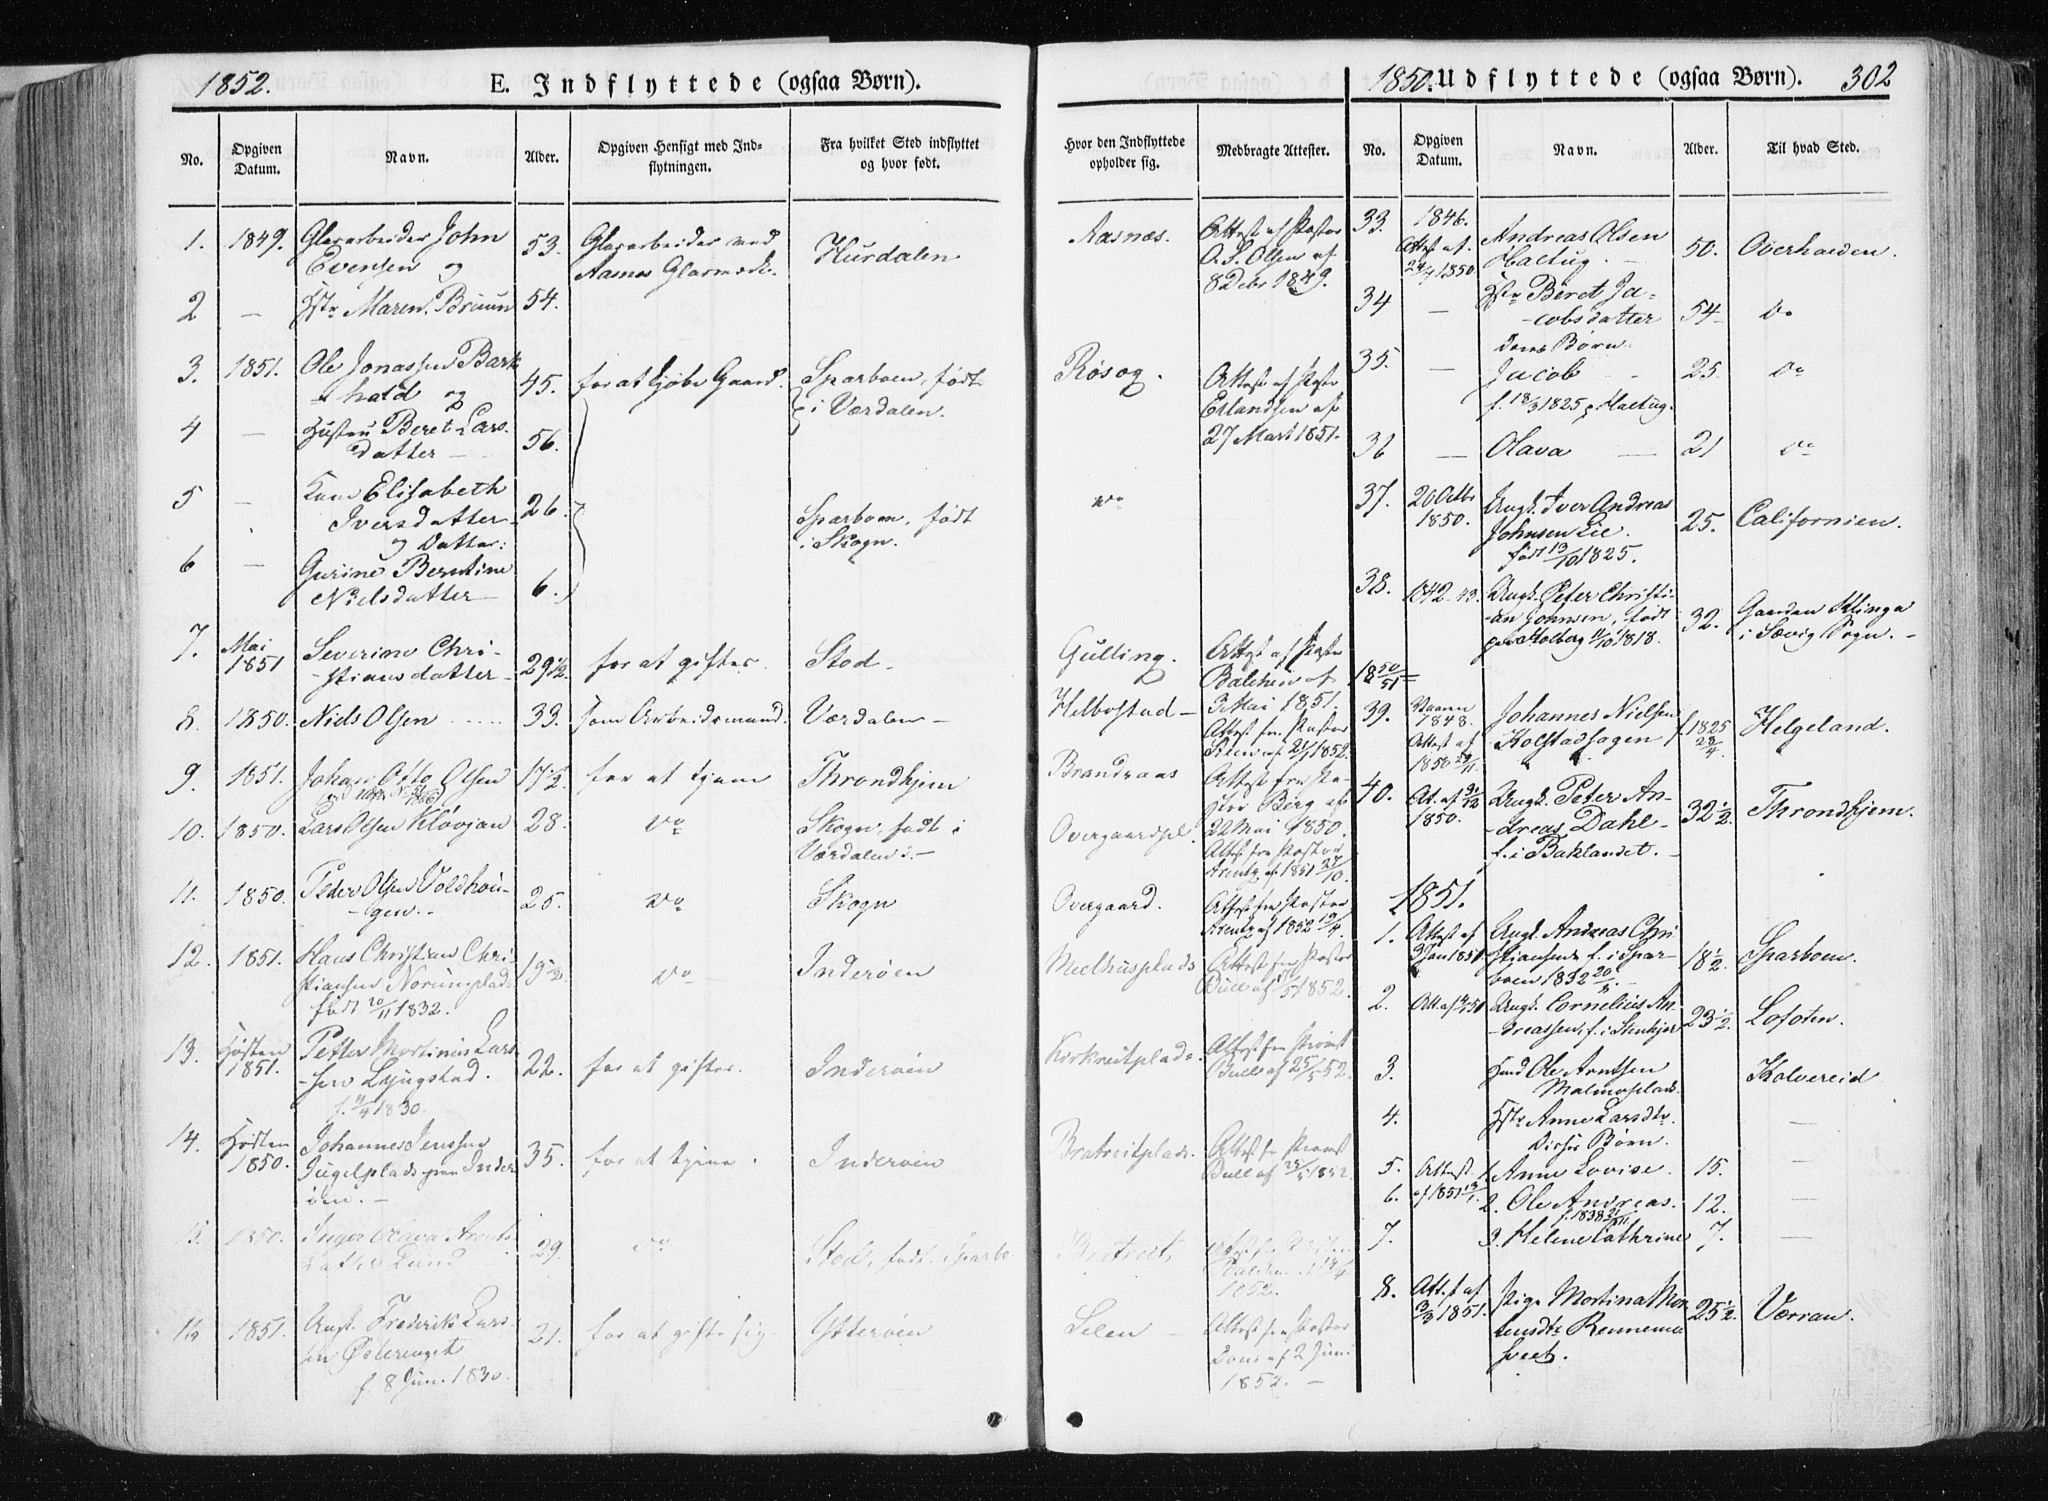 1852.
E. Indflyttede (ogsaa Børn).
No.
Opgiven Datum.
Navn.
Alder.
Opgiven Hensigt med Ind-
flytningen.
Fra hvilket Sted indflyttet
og hvor født.
Hvor den Indflyttede
opholder sig.
Medbragte Attester.
1. 1849. Glasarbeider John 53. Glasarbeider ved Hurdalen Aasnæs. Attest af Pastor
Evensen og Aasnæs Glasværk. A. S. Olsen af
8 Debr 1849.
2 — Hstr Maren Bruun 54.
3. 1851. Ole Jonassen Bark 45. for at kjøbe Gaard. Sparboen, født Røsog. Attest af Pastor
hald og i Værdalen. Erlandsen af
27 Marts 1851.
4 — Hustru Beret Lars- 56.
datter —
5 — Elisabeth 26. Sparboen, født do
Iversdatter i Skogn.
og Datter:
6 — Gurine Berntine 6.
Nielsdatter —
7. Mai Severine Chri- 29½. for at giftes. Stod. Gulling. Attest af Pastor
1851 stiansdatter — Balchen af
3 Mai 1851.
8. 1850. Niels Olsen 33. som Arbeidsmand. Værdalen — Helbostad — Attest fr. Pastor
1852.
9. 1851. Johan Otto Olsen 17½ for at tjene Throndhjem Brandraas Attest fra Pa-
stor Berg af
22 Mai 1850.
10. 1850. Lars Olsen Kløvjan 28. do Skogn, født i Overgaardspl. Attest fra Pastor
Værdalen. — Arentz af 1851 27/10.
11. 1850. Peder Olsen Voldhau- 25. do Skogn Overgaard. Attest fra Pastor
gen. Arentz af 1852 19/4.
12. 1851. Hans Christian Chri- 19½ do Inderøen Meelhusplads Attest fra Pastor
stiansen Norumplads Bull af 1852.
født 20/11 1832.
13. Høsten Petter Mortinus Lars- 22. for at giftes. Inderøen Korkneitplads. Attest fra Provst
1851. sen Lyngstad. Bull af 25/5 52.
f. 1830.
14. Høsten Johannes Jenssen 35. for at tjene. Inderøen Bratreitplads. Attest fra Provst
1850. Jugelplads fra Inder- Bull af 1852.
øen. —
15. 1850. Inger Olava Arnts- 29. do Stod, født i Sparbo Bratreit,
datter Lund 1852.
16 1851. Ungk. Frederik Lars- 21. for at gifte sig. Ytterøen Selen — Attest fra Pastor
sen Østerenget af 2 Juni
f. 8 Juni 1830. 1852. —
1850. Udflyttede (ogsaa Børn). 302
No.
Opgiven
Datum.
Navn.
Alder.
Til hvad Sted.
33. 1846. Andreas Olsen 50. Overhalden
Attest af Haltug. —
24/4 1850
34 — Hstr Beret Ja- 54 do
cobsdatter
deres Børn
35. — Jacob 25. do
f. 18/3 1825 p. Haltug.
36 — Olava 21 do
37. 20 Octbr Ungk. Iver Andreas 25. Californien.
1850. Johnsen Lie.
født 13/10 1825.
38. 1842-43. Ungk. Peter Christi- 32. Gaarden Klinga
an Johnsen, født i Sævig Sogn. —
paa Holberg 11/10 1818.
1850/51
39. Vaaren Johannes Nielsen f. 1825 Helgeland.
1848. Holstadhagen 28/4
Attest af
1850
40. At. af Ungk. Peter An- 32½ Throndhjem.
1850. dreas Dahl —
f. i Baklandet. —
1851.
1. Attest af Ungk. Andreas Chri- 18½ Sparboen.
3 Jan 1851 stiansen f. i Spar-
boen 1832 20/8. —
2. Att. af Ungk. Cornelius An- 23½. Lofoten.
dreassen, f. i Stenkjær
3. Husmd Ole Arntsen Kolvereid
Malmoplads.
4. Hstr Anne Larsdtr. —
Disses Børn.
5. Attest 1. Anne Lovise. 15. —
6. af 1851 13/1. 2. Ole Andreas. 12. —
f. 1838 21/11
7. 3. Helene Cathrine 7. —
8. Att. af Pige Mortina Mor- 25½. Værran.
3/3 1851. tensdtr Rennema